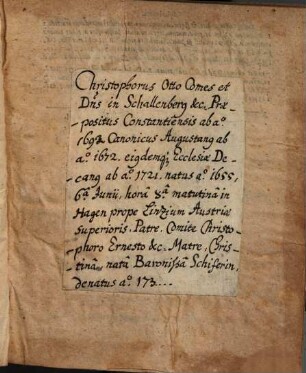 Christophorus Otto Comes et
Dñs in Schallenberg &c. Præ-
positus Constantiensis ab aº.
1692. Canonicus Augustanꝯ ab
aº. 1672. ejꝯdemqꝫ Ecclesiæ De-
canꝯ ab aº. 1721. natus aº. 1655,
6tâ Junij, horâ 8vâ matutinâ in
Hagen prope Linzium Austriæ
superioris. Patre. Comite Christo-
phoro Ernesto &c. Matre, Chris-
tinâ, natâ Baronissâ Schiferin,
denatus aº. 173....